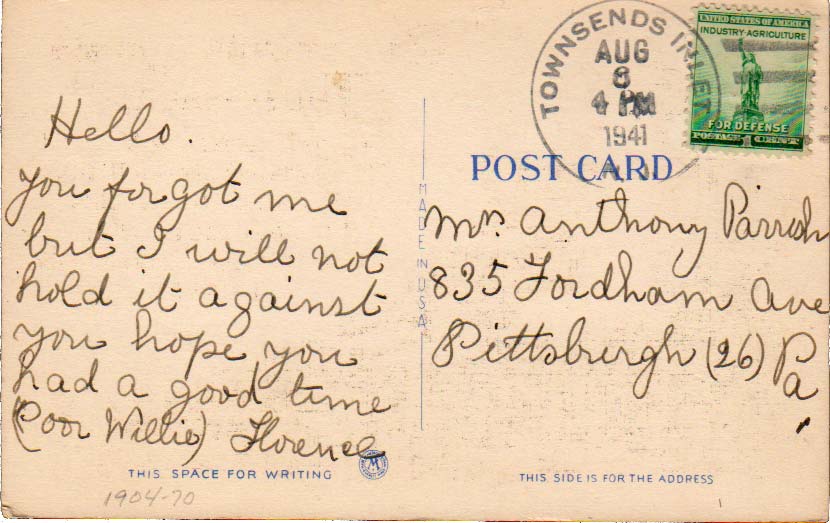 TOWNSENDS INLET
AUG
8
4 PM
1941
N.J.
UNITED STATES OF AMERICA
INDUSTRY-AGRICULTURE
FOR DEFENSE
POSTAGE 1 CENT
POST CARD
Hello.
You forgot me
but I will not
hold it against
you hope you
had a good time
(Poor Willie) Florence
MADE IN USA
Mrs. Anthony Parrish
835 Fordham Ave
Pittsburgh (26) Pa.
M
THIS SPACE FOR WRITING
THIS SIDE IS FOR THE ADDRESS
1904-70